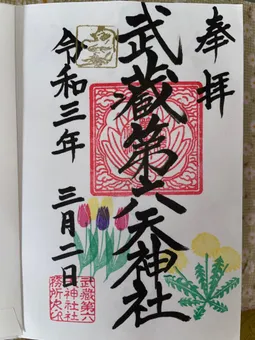 奉拝
武蔵第六天神社
令和三年 三月二日
武蔵第六
神社社
務所之印